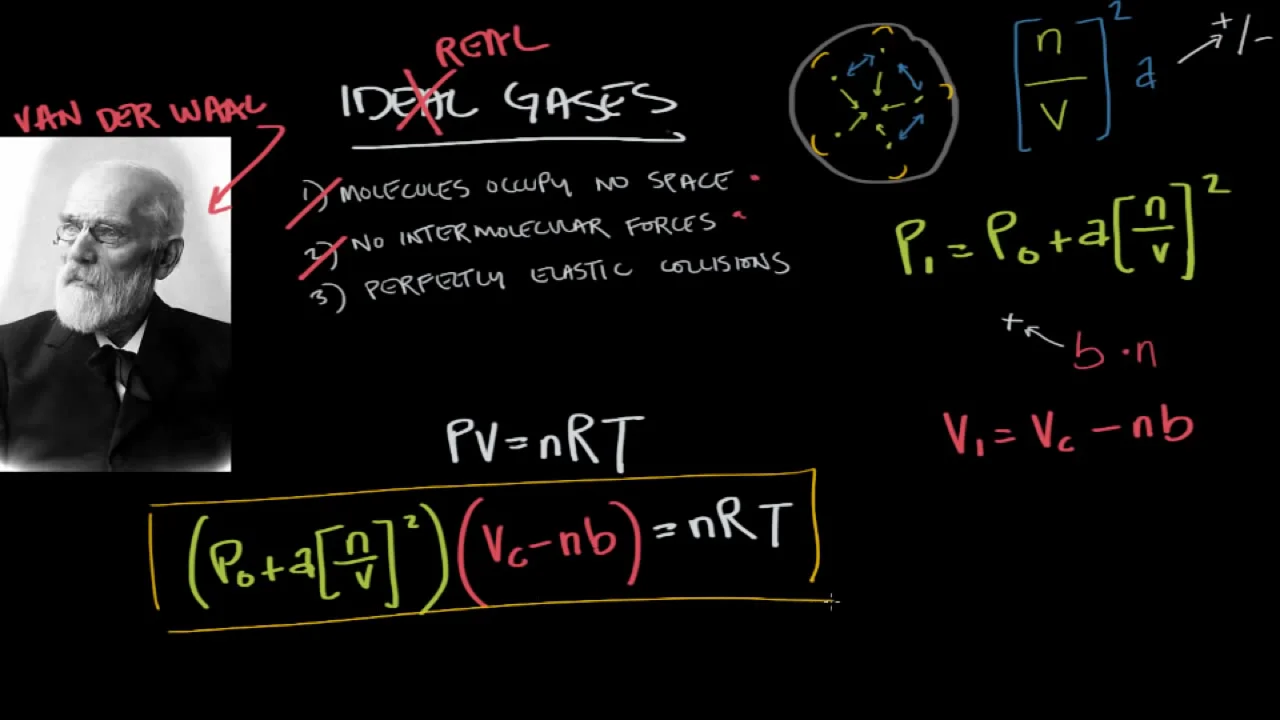 REAL
IDEAL GASES
VAN DER WAAL
1) MOLECULES OCCUPY NO SPACE
2) NO INTERMOLECULAR FORCES
3) PERFECTLY ELASTIC COLLISIONS
[n/V]² a +/-
P₁ = P₀ + a[n/V]²
+ b·n
V₁ = Vc - nb
PV = nRT
(P₀ + a[n/V]²)(Vc - nb) = nRT